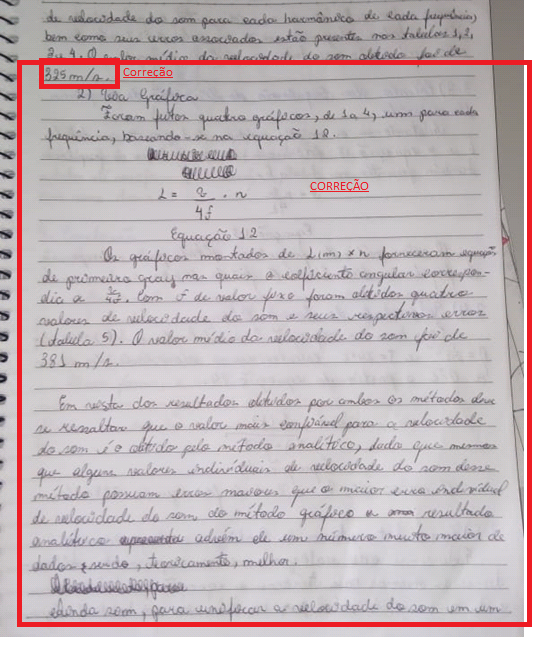 de velocidade do som para cada harmônico de cada frequência,
bem como seus erros associados estão presentes nas tabelas 1, 2,
3 e 4. O valor médio da velocidade do som obtido foi de
325 m/s. Correção
2) Via Gráfica
Foram feitos quatro gráficos, de 1 a 4, um para cada
frequência, baseando-se na equação 12.
L = v/4f · n
CORREÇÃO
Equação 12
Os gráficos montados de L(m) x n forneceram equações
de primeiro grau nas quais o coeficiente angular correspon-
dia a v/4f. Com f de valor fixo foram obtidos quatro
valores de velocidade do som e seus respectivos erros
(tabela 5). O valor médio da velocidade do som foi de
381 m/s.
Em vista dos resultados obtidos por ambos os métodos deve
se ressaltar que o valor mais confiável para a velocidade
do som é o obtido pelo método analítico, dado que mesmo
que alguns valores individuais de velocidade do som desse
método possuam erros maiores que o maior erro individual
de velocidade do som do método gráfico o resultado
analítico advém de um número muito maior de
dados sendo, teoricamente, melhor.
ainda assim, para unificar a velocidade do som em um